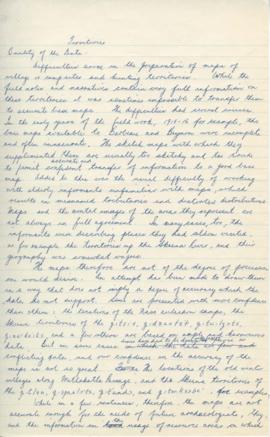 Territories
Quality of the Data
Difficulties arose in the preparation of maps of
village campsites and hunting territories. While the
field notes and narratives contain very full information on
these territories it was sometimes impossible to transfer them
to accurate base maps. The difficulties had several sources.
In the early years of the field work, 1915-16 for example, the
base maps available to Barbeau and Beynon were incomplete
and often inaccurate. The sketch maps with which they
supplemented these are usually too sketchy and too
to permit confident transfer of information to a good base
map. Added to this was the usual difficulty of working
with elderly informants unfamiliar with maps, which
results in
maps and the verbal images of the area they represent are
not always in full agreement. In many cases, too, the
informants were describing places they had seldom visited,
as for example the territories up the Skeena River, and their
geography was somewhat vague.
The maps therefore are not of the degree of precision
we would desire. An attempt has been made to draw them
in a way that does not imply a degree of accuracy which the
data do not support. Some are presented with more confidence
than others: the locations of the Nass eulachon camps, the
Skeena territories of the
and a few others are based on ample and
data but in some cases
conflicting data, and our confidence in the accuracy of the
maps is not so great. The locations of the old winter
villages along Metlakatla Passage, and the Skeena territories of
the
for example.
While in a few instances, therefore, the maps are not
accurate enough for the needs of future archaeologists, they
and the information on the usage of resource areas in which